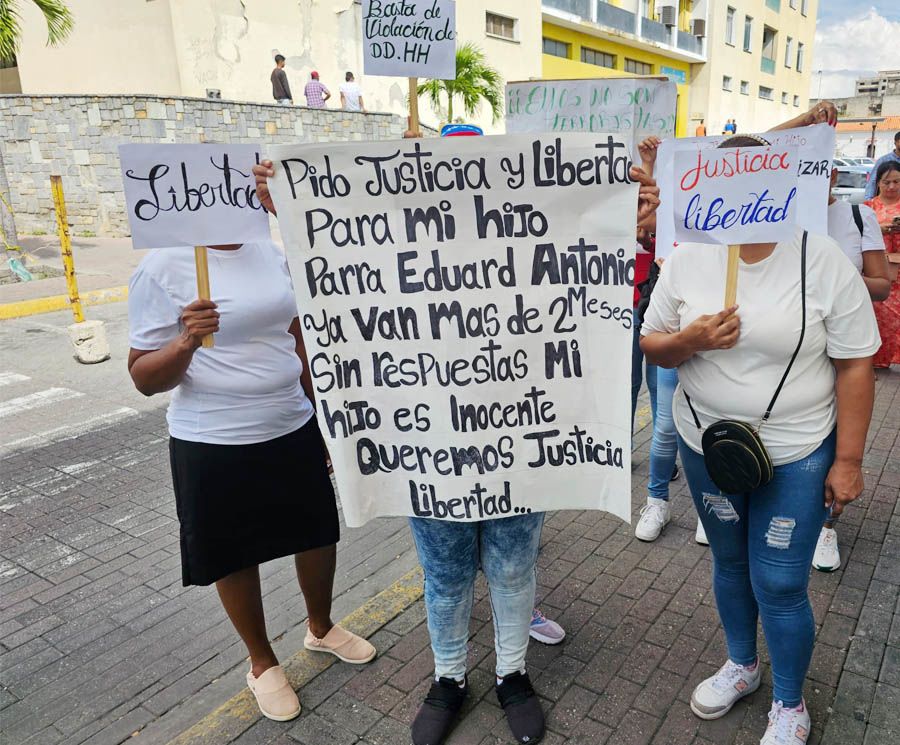 Basta de
Violación de
DD.HH
ELLOS NO SON
TERRORISTAS
Libertad
Pido Justicia y Libertad
Para mi hijo
Parra Eduard Antonio
ya van mas de 2 Meses
Sin respuestas Mi
hijo es Inocente
Queremos Justicia
Libertad...
Justicia
libertad
mi hijo
IZAR